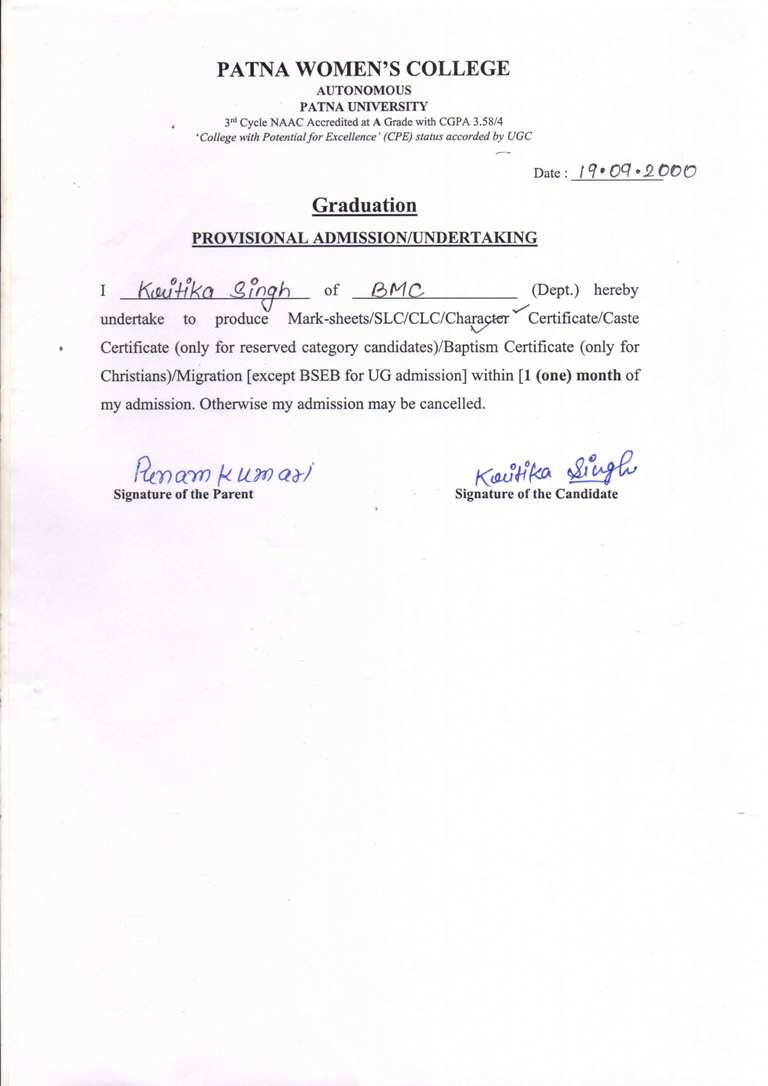 PATNA WOMEN'S COLLEGE
AUTONOMOUS
PATNA UNIVERSITY
3rd Cycle NAAC Accredited at A Grade with CGPA 3.58/4
'College with Potential for Excellence' (CPE) status accorded by UGC
Date : 19.09.2000
Graduation
PROVISIONAL ADMISSION/UNDERTAKING
I Kritika Singh of BMC (Dept.) hereby
undertake to produce Mark-sheets/SLC/CLC/Character Certificate/Caste
Certificate (only for reserved category candidates)/Baptism Certificate (only for
Christians)/Migration [except BSEB for UG admission] within [1 (one) month of
my admission. Otherwise my admission may be cancelled.
Punam kumari Kritika Singh
Signature of the Parent Signature of the Candidate